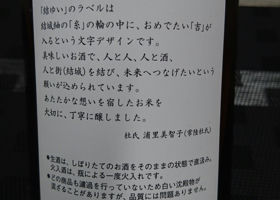 「結ゆい」のラベルは
結城紬の「糸」の輪の中に、おめでたい「吉」が
入るという文字デザインです。
美味しいお酒で、人と人、人と酒、
人と街(結城)を結び、未来へつなげたいという
願いが込められています。
あたたかな想いを宿したお米を
大切に、丁寧に醸しました。
杜氏 浦里美智子(常陸杜氏)
●生酒は、しぼりたてのお酒をそのままの状態で直汲み。
火入酒は、瓶による一度火入れです。
●どの商品も濾過を行っていないため白い沈殿物が
混ざることがありますが、品質には問題ありません。